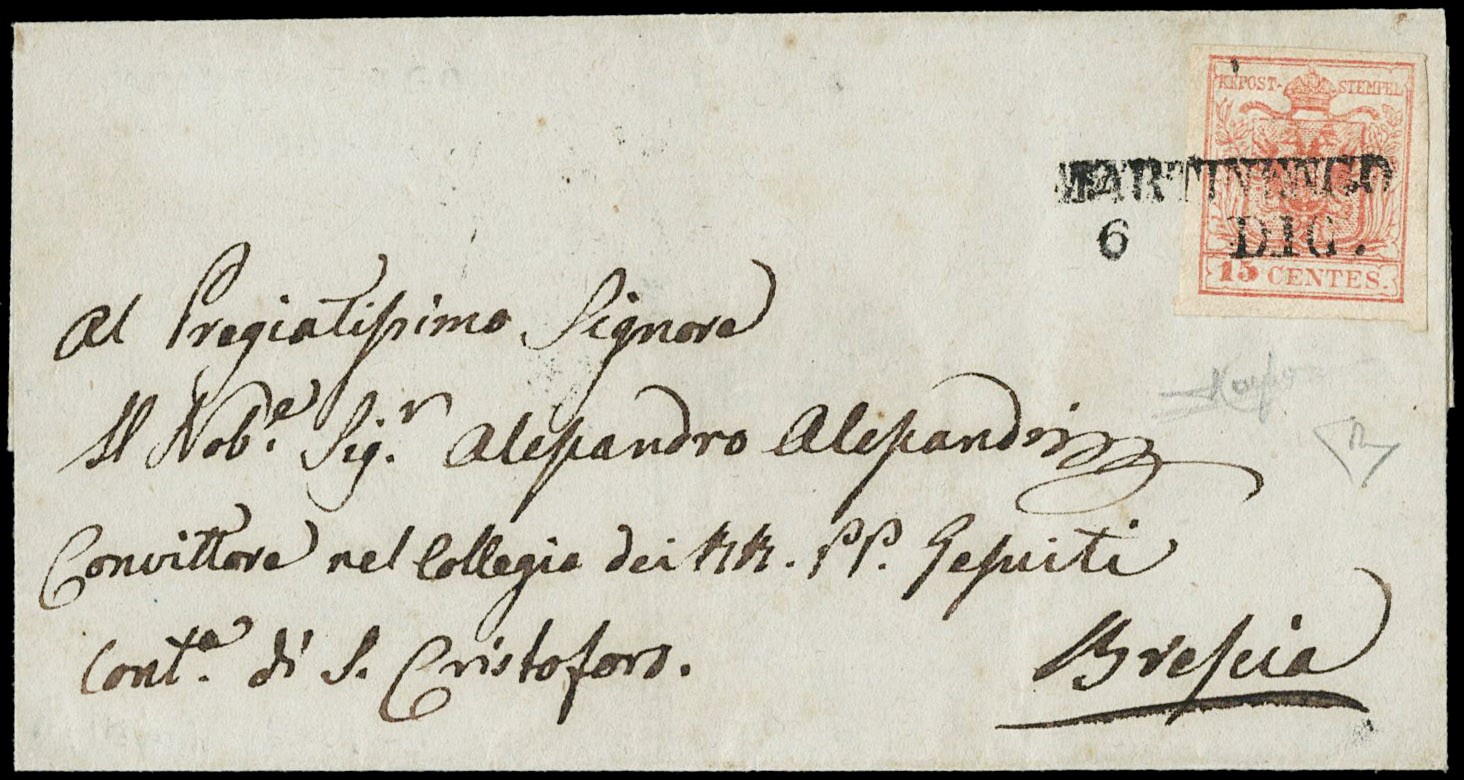 KKPOST-STEMPEL
MARTINENGO
6 DIC.
15 CENTES.
Al Pregiatissimo Signore
Il Nob.e Sig.r Alessandro Alessandri
Convittore nel Collegio dei RR. PP. Gesuiti
Cont.a di S. Cristoforo.
Brescia